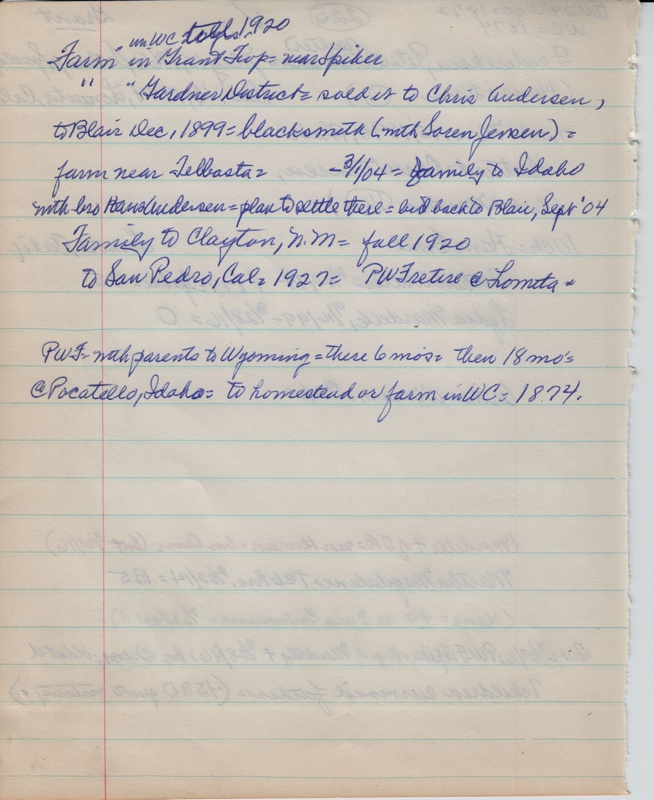 in WC to fall 1920
Farm in Grant Twp = near Spiker
" " Gardner District = sold it to Chris Andersen,
to Blair Dec, 1899 = blacksmith (with Soren Jensen) =
farm near Telbasta = - 3/1/04 = family to Idaho
with bro Hans Andersen = plan to settle there = but back to Blair, Sept '04
Family to Clayton, N.M = fall 1920
to San Pedro, Cal = 1927 = PWF retire @ Lomita
PWF = with parents to Wyoming = there 6 mos = then 18 mo's
@ Pocatello, Idaho = to homestead or farm in WC = 1874.